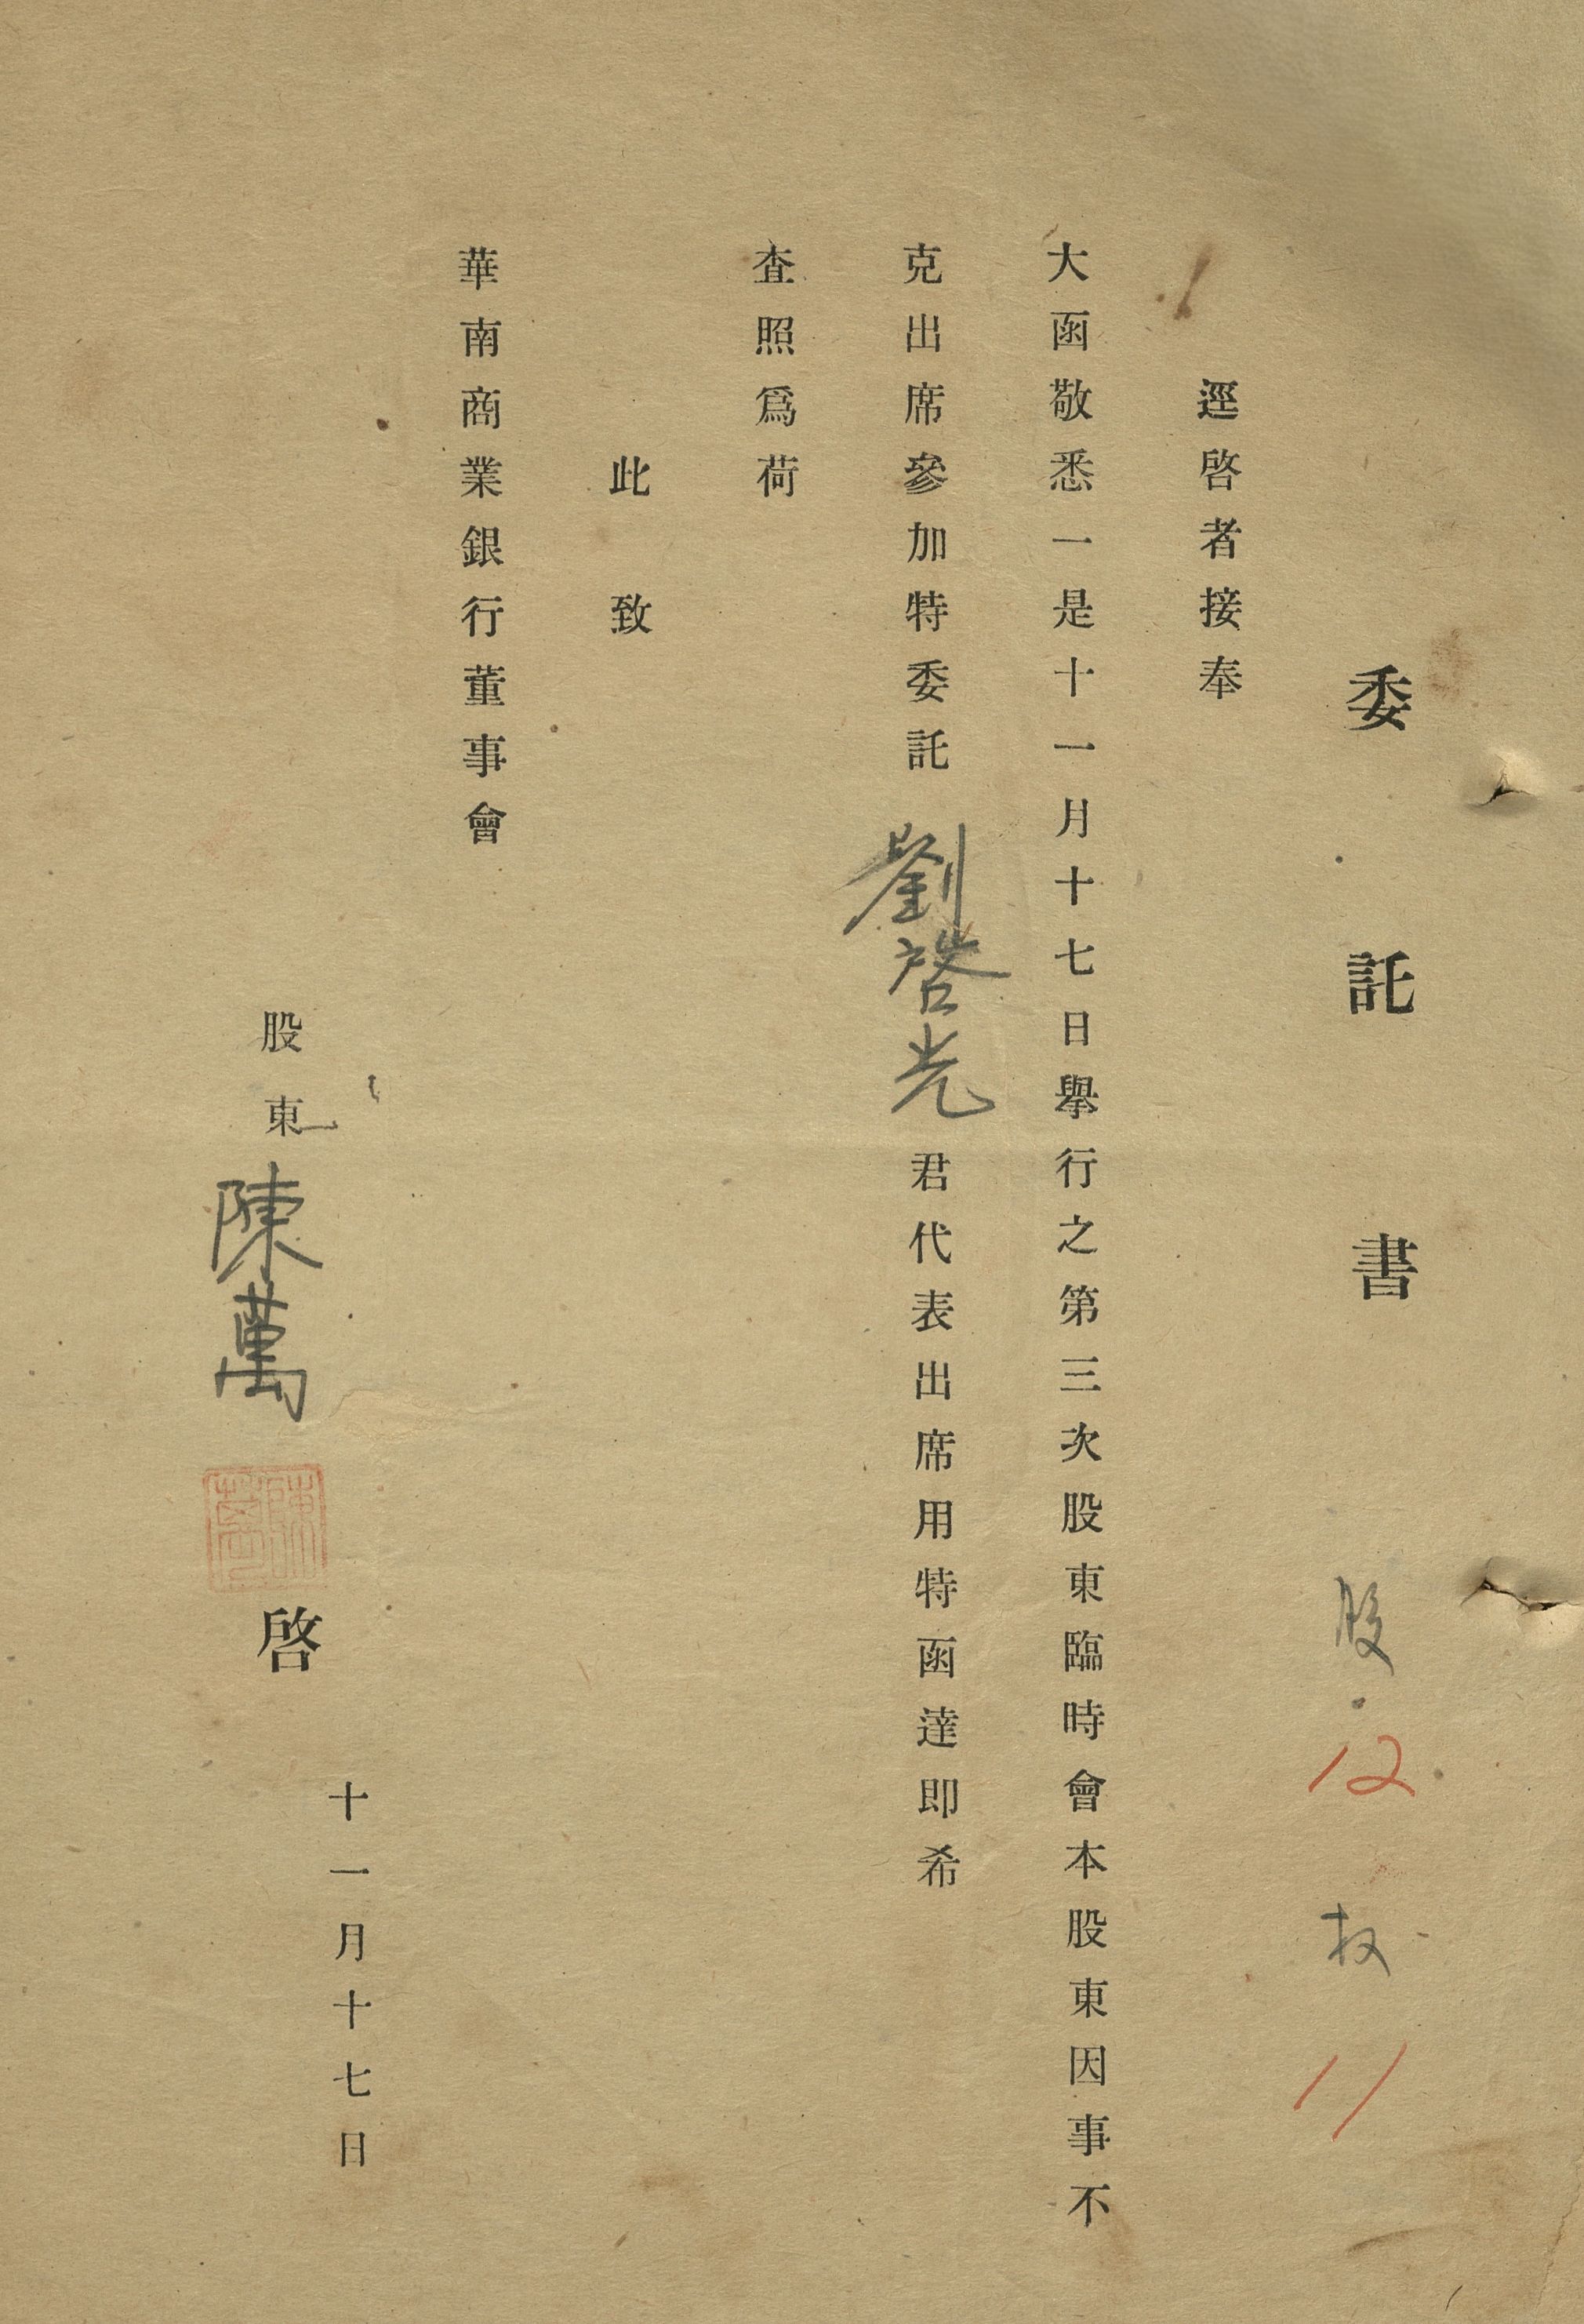 委託書
股 12 权 11
逕啓者接奉
大函敬悉一是十一月十七日舉行之第三次股東臨時會本股東因事不
克出席參加特委託 劉啓光 君代表出席用特函達即希
査照爲荷
此致
華南商業銀行董事會
十一月十七日
股東 陳萬 啓
陳萬